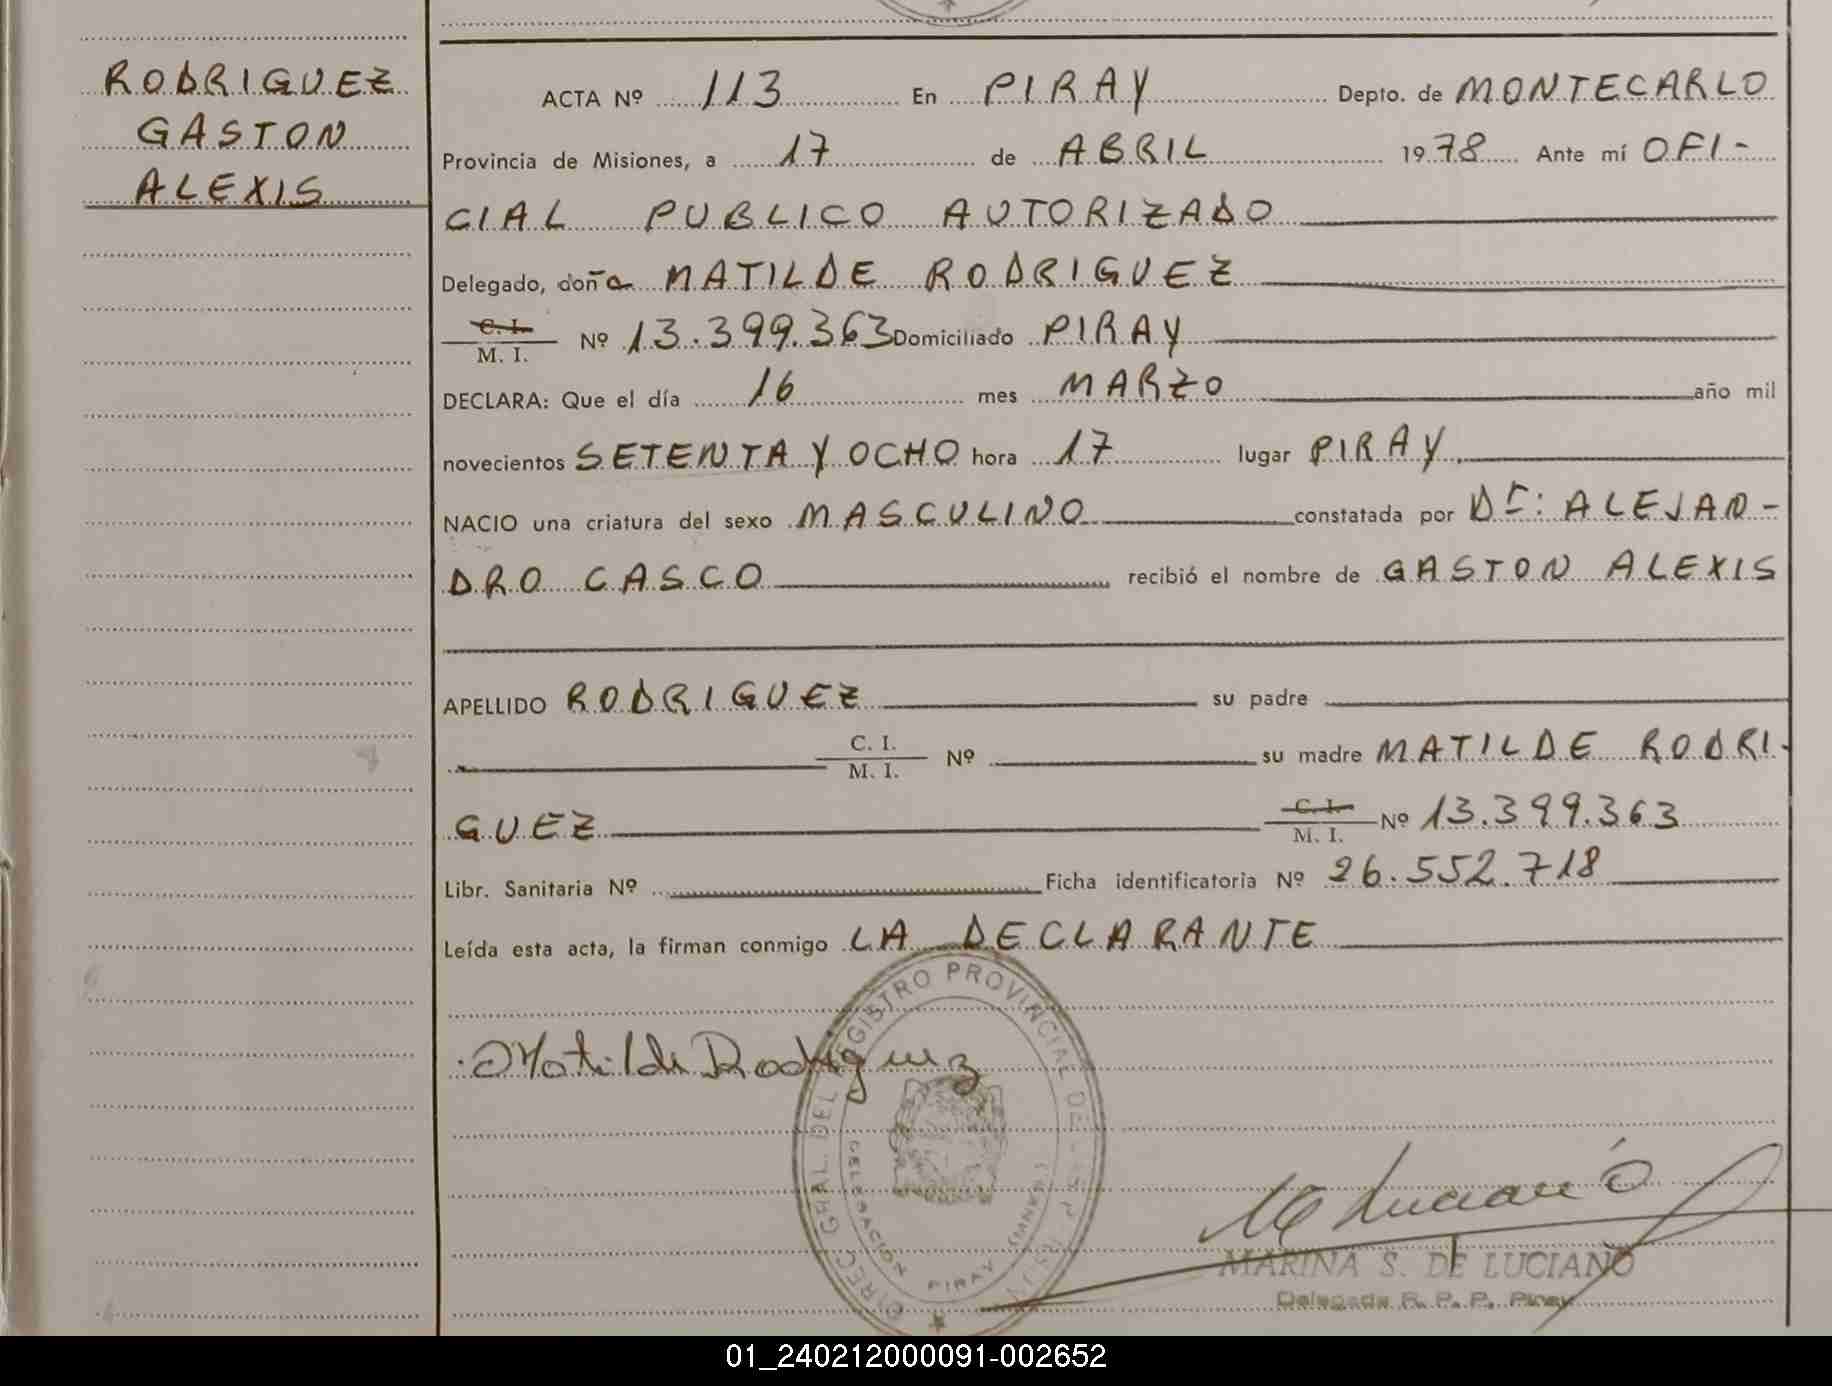 RODRIGUEZ
GASTON
ALEXIS
ACTA Nº 113 En PIRAY Depto. de MONTECARLO
Provincia de Misiones, a 17 de ABRIL 1978 Ante mí OFI-
CIAL PUBLICO AUTORIZADO
Delegado, doña MATILDE RODRIGUEZ
C. I.
M. I. Nº 13.399.363 Domiciliado PIRAY
DECLARA: Que el día 16 mes MARZO año mil
novecientos SETENTA Y OCHO hora 17 lugar PIRAY.
NACIO una criatura del sexo MASCULINO constatada por Dr: ALEJAN-
DRO CASCO recibió el nombre de GASTON ALEXIS
APELLIDO RODRIGUEZ su padre
C. I.
M. I. Nº su madre MATILDE RODRI-
GUEZ C. I.
M. I. Nº 13.399.363
Libr. Sanitaria Nº Ficha identificatoria Nº 26.552.718
Leída esta acta, la firman conmigo LA DECLARANTE
Matilde Rodriguez
DIREC. GRAL. DEL REGISTRO PROVINCIAL DE
DELEGACION PIRAY (MNES.)
M Luciano
MARINA S. DE LUCIANO
Delegada R. P. P. Piray
01_240212000091-002652